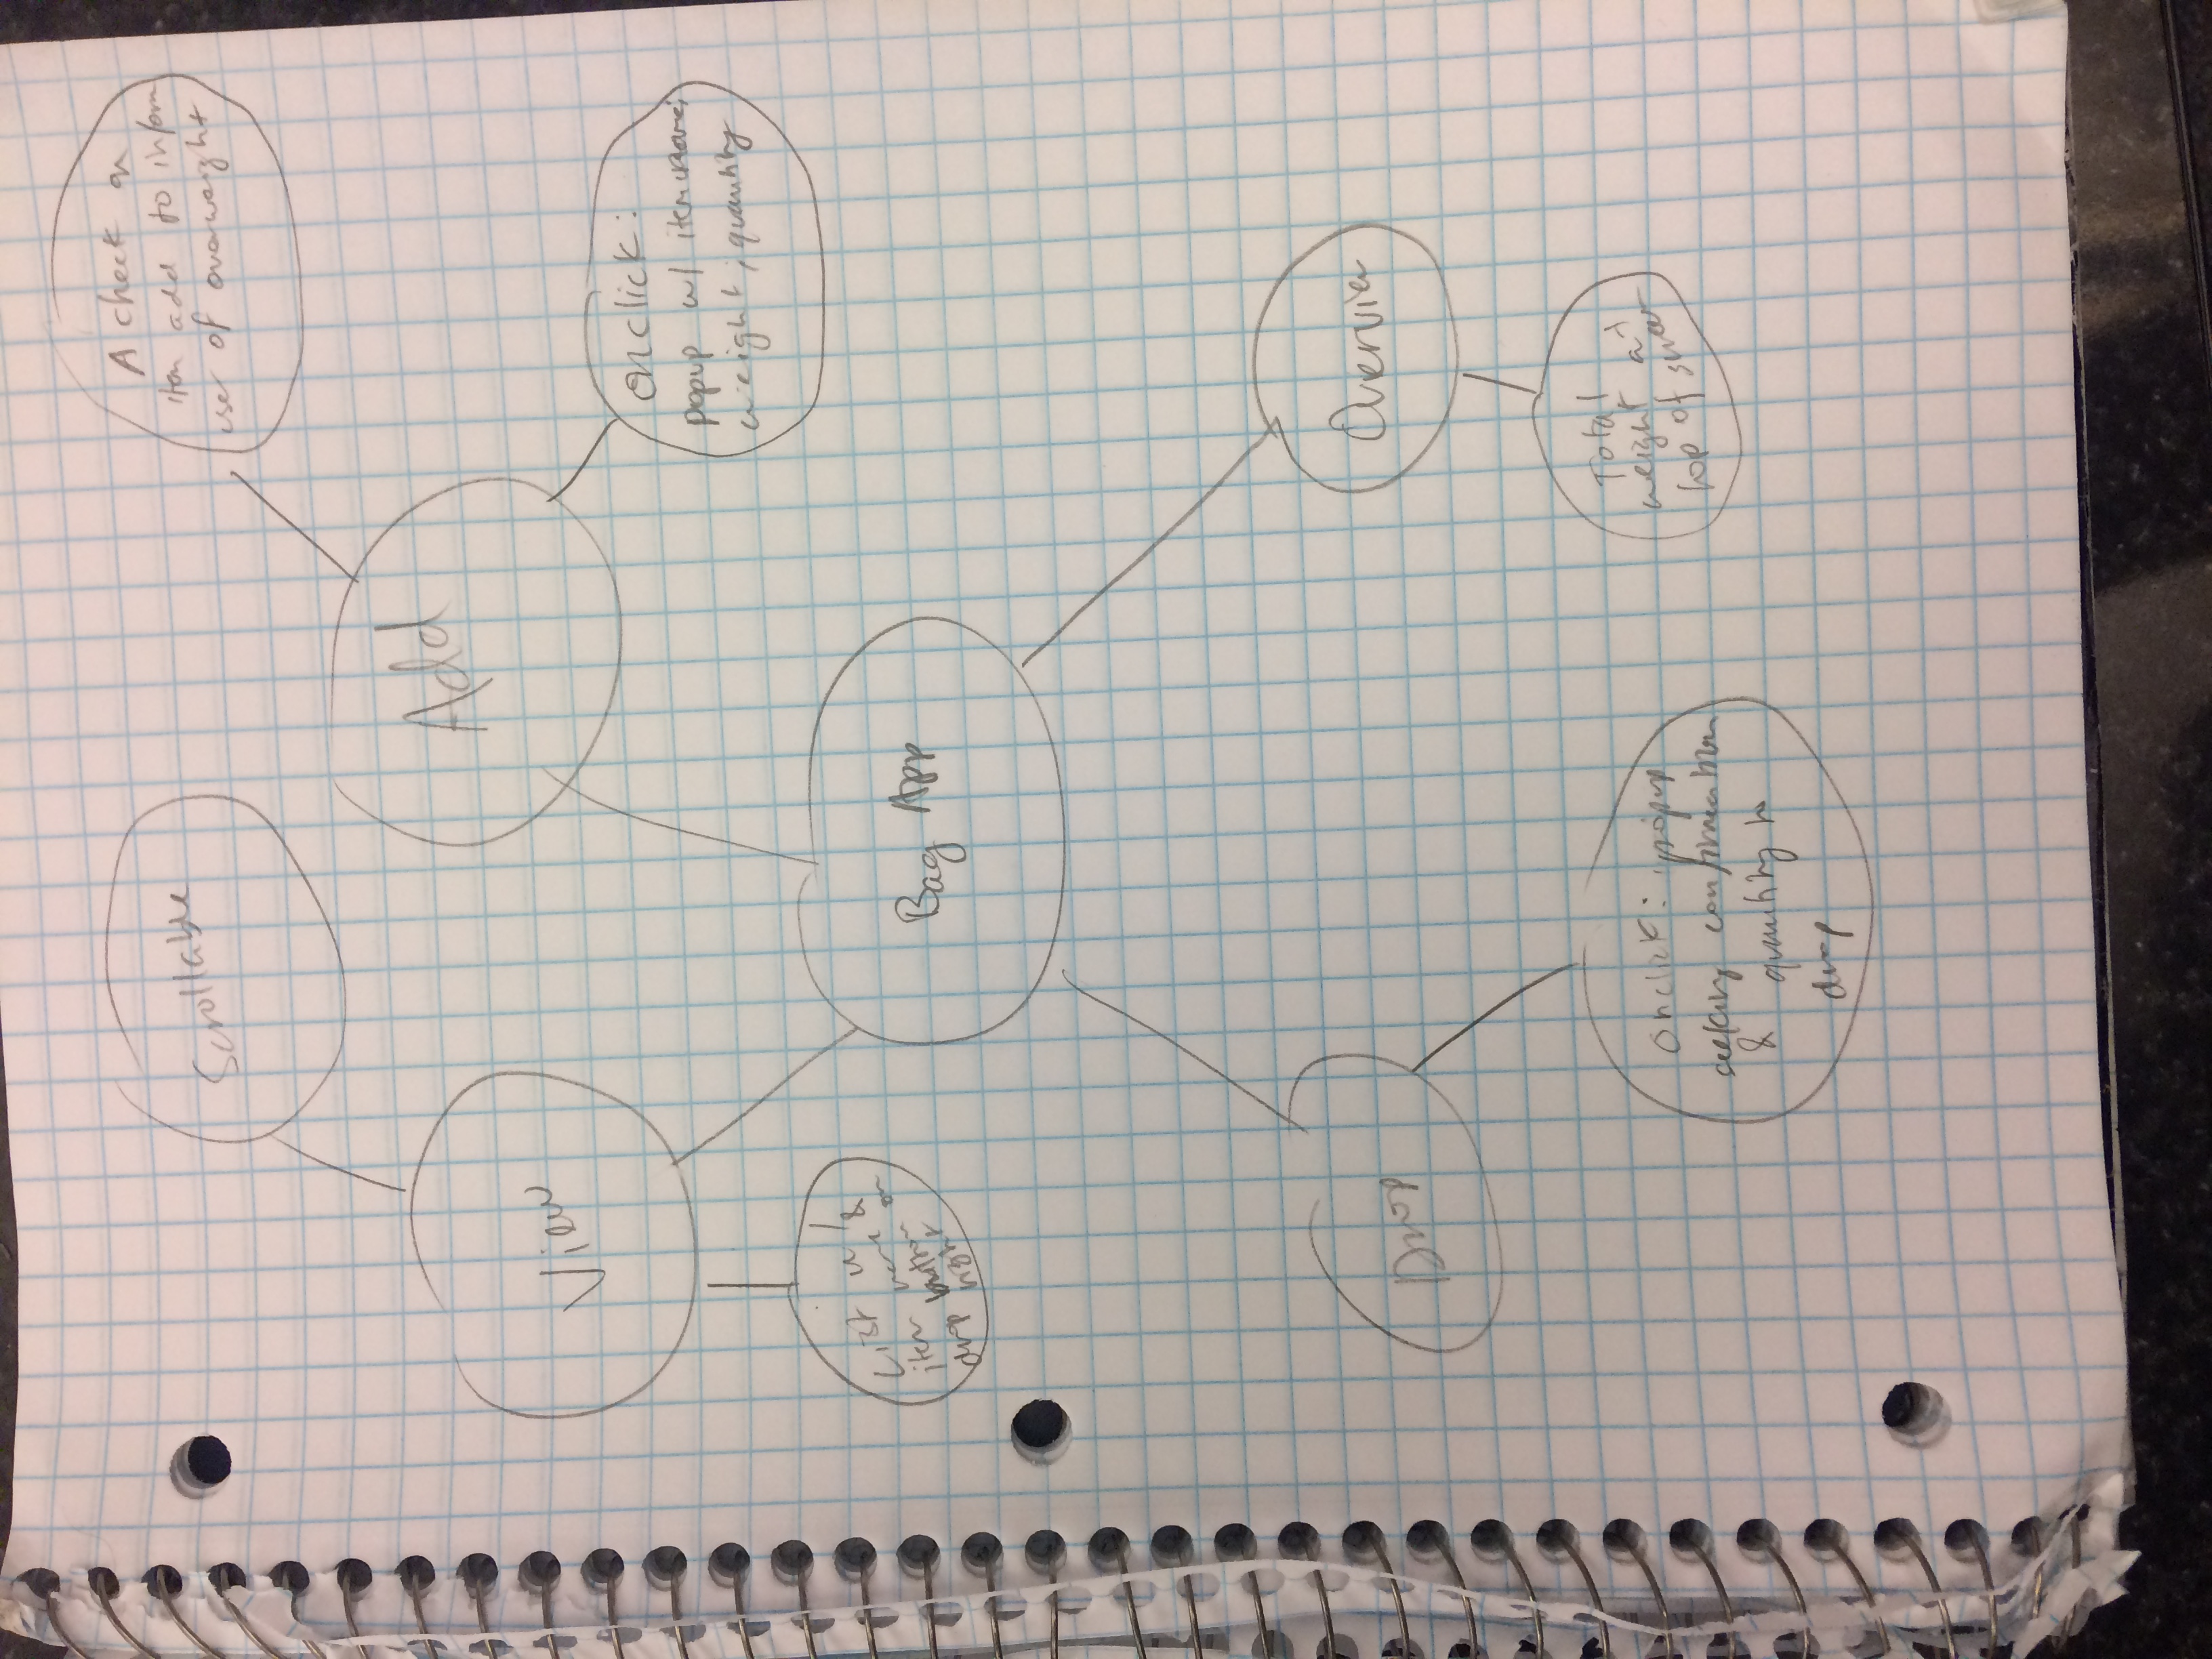 Scrollable
A check on
item add to inform
user of overweight
Add
View
Onclick:
Popup w/ item name;
weight; quantity
List w/
item name &
drop button on
right
Bag App
Drop
Overview
Onclick: popup
seeking confirmation
& quantity to
drop
Total
weight at
top of screen